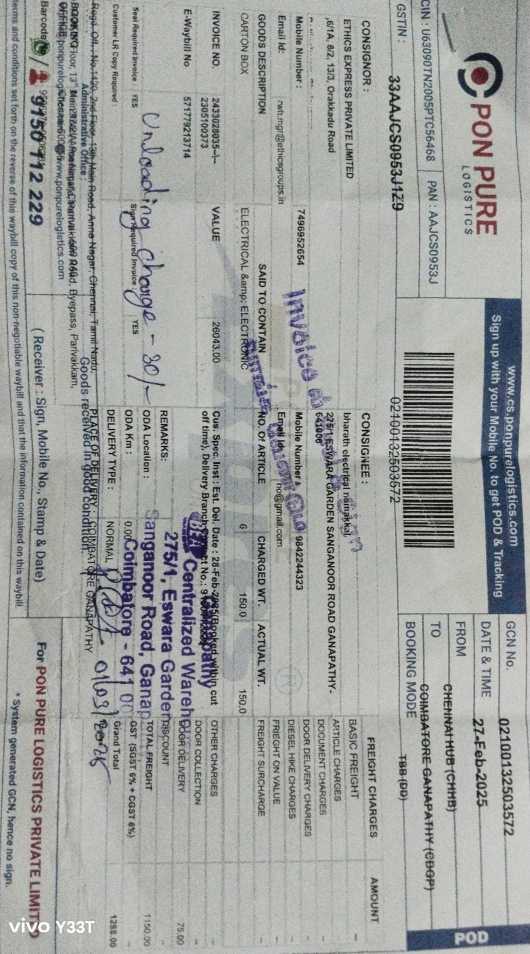 PON PURE
LOGISTICS
www.cs.ponpurelogistics.com
Sign up with your Mobile No. to get POD & Tracking
CIN : U63090TN2005PTC56468
PAN : AAJCS0953J
GSTIN :
33AAJCS0953J1Z9
02100132503572
GCN No.
02100132503572
DATE & TIME
27-Feb-2025
FROM
CHENNAI HUB (CHHB)
TO
COIMBATORE GANAPATHY (CBGP)
BOOKING MODE
TBB (DD)
POD
CONSIGNOR :
ETHICS EXPRESS PRIVATE LIMITED
,6/1A, 8/2, 13/3, Orakkadu Road
Mobile Number :
7496952654
Email Id:
rwh.mgr@ethicsgroups.in
CONSIGNEE :
bharath electrical namakkal
275/1 ESWARA GARDEN SANGANOOR ROAD GANAPATHY-
641006
Mobile Number :
9842244323
Email
ho@gmail.com
FREIGHT CHARGES
AMOUNT
BASIC FREIGHT
ARTICLE CHARGES
DOCUMENT CHARGES
DOOR DELIVERY CHARGES
DIESEL HIKE CHARGES
FRIEGHT ON VALUE
FREIGHT SURCHARGE
OTHER CHARGES
DOOR COLLECTION
DOOR DELIVERY
75.00
DISCOUNT
TOTAL FREIGHT
1150.00
GST (SGST 6% + CGST 6%)
Grand Total
1288.00
GOODS DESCRIPTION
SAID TO CONTAIN
NO. OF ARTICLE
CHARGED WT.
ACTUAL WT.
CARTON BOX
ELECTRICAL &amp; ELECTRONIC
6
150.0
150.0
INVOICE NO.
2433028035--/--
2305100373
VALUE
26043.00
Cus. Spec. Inst : Est. Del. Date : 28-Feb-2025(Booked within cut
off time), Delivery Branch
E-Waybill No
571779213714
REMARKS:
Seal Required Invoice : YES
Sign Required Invoice : YES
Customer LR Copy Required :
ODA Location :
ODA Km :
0.00
DELIVERY TYPE :
NORMAL
PLACE OF DELIVERY : COIMBATORE GANAPATHY
Unloading charge - 30/-
Centralized Wareh
275/1, Eswara Garden
Sanganoor Road, Ganap
Coimbatore - 641 00
01/03/2025
Administrative Office :
Goods received in good condition.
BOOKING
OFFICE
Barcode
9150 112 229
( Receiver : Sign, Mobile No., Stamp & Date)
For PON PURE LOGISTICS PRIVATE LIMITED
terms and conditions set forth on the reverse of this waybill copy of this non-negotiable waybill and that the information contained on this waybill
* System generated GCN, hence no sign.
vivo Y33T